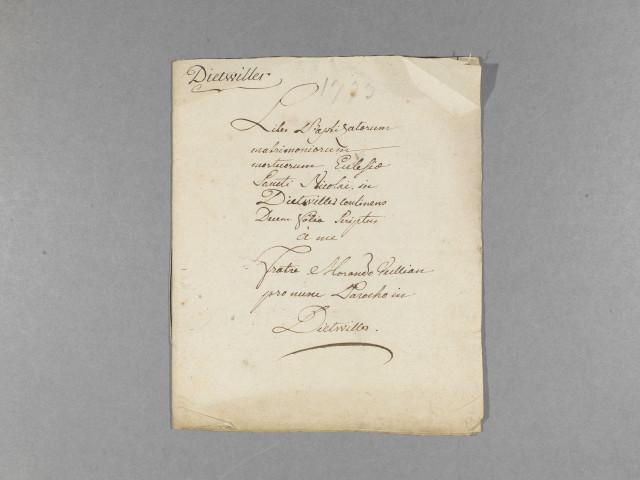 Dietwiller.
1793
Liber Baptizatorum
matrimoniorum
mortuorum Eclesiæ
Sancti Nicolai in
Dietwiller continens
Decem folia Scriptus
à me
Fratre Morando
pro nunc Parocho in
Dietwiller.